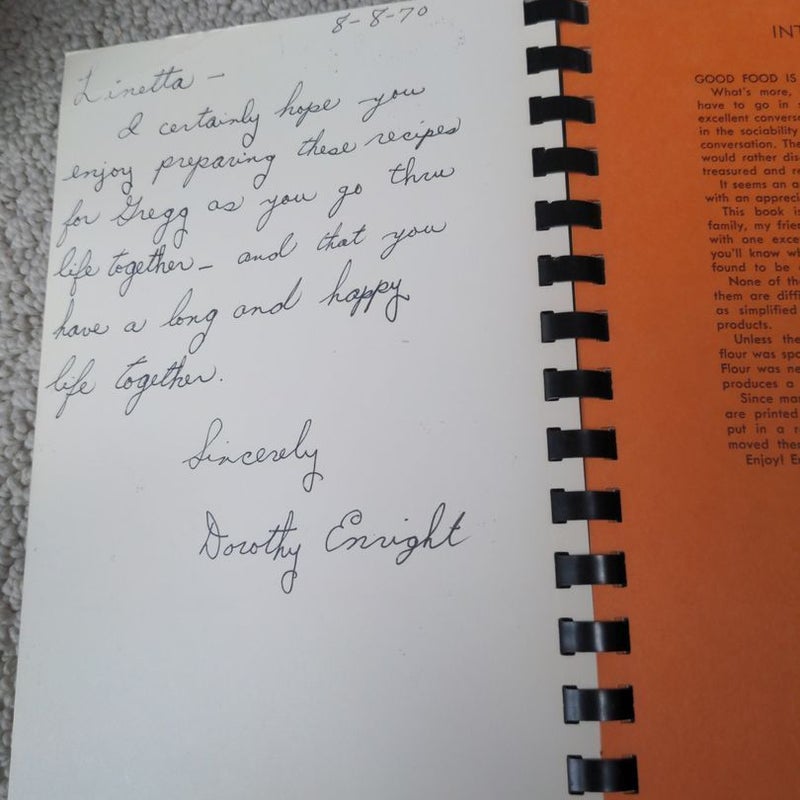 8-8-70
Linetta —
I certainly hope you
enjoy preparing these recipes
for Gregg as you go thru
life together — and that you
have a long and happy
life together.
Sincerely
Dorothy Enright
INT
GOOD FOOD IS
What's more,
have to go in
excellent convers
in the sociability
conversation. The
would rather dis
treasured and re
It seems an a
with an appreci
This book is
family, my frie
with one exce
you'll know wh
found to be
None of th
them are diffi
as simplified
products.
Unless the
flour was spo
Flour was ne
produces a
Since mar
are printed
put in a r
moved thes
Enjoy! E